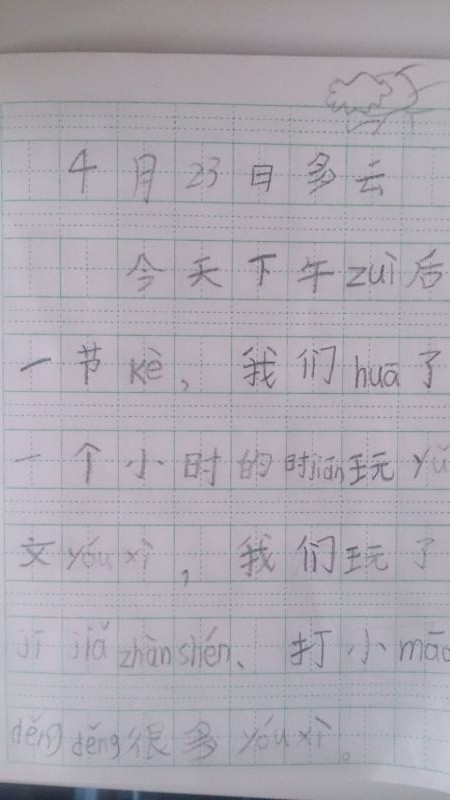 4月23日多云
今天下午zuì后
一节kè，我们huā了
一个小时的时jiān玩yǔ
文yóuxì，我们玩了
jī jiǎ zhàn shén、打小māo
děng děng很多yóuxì。